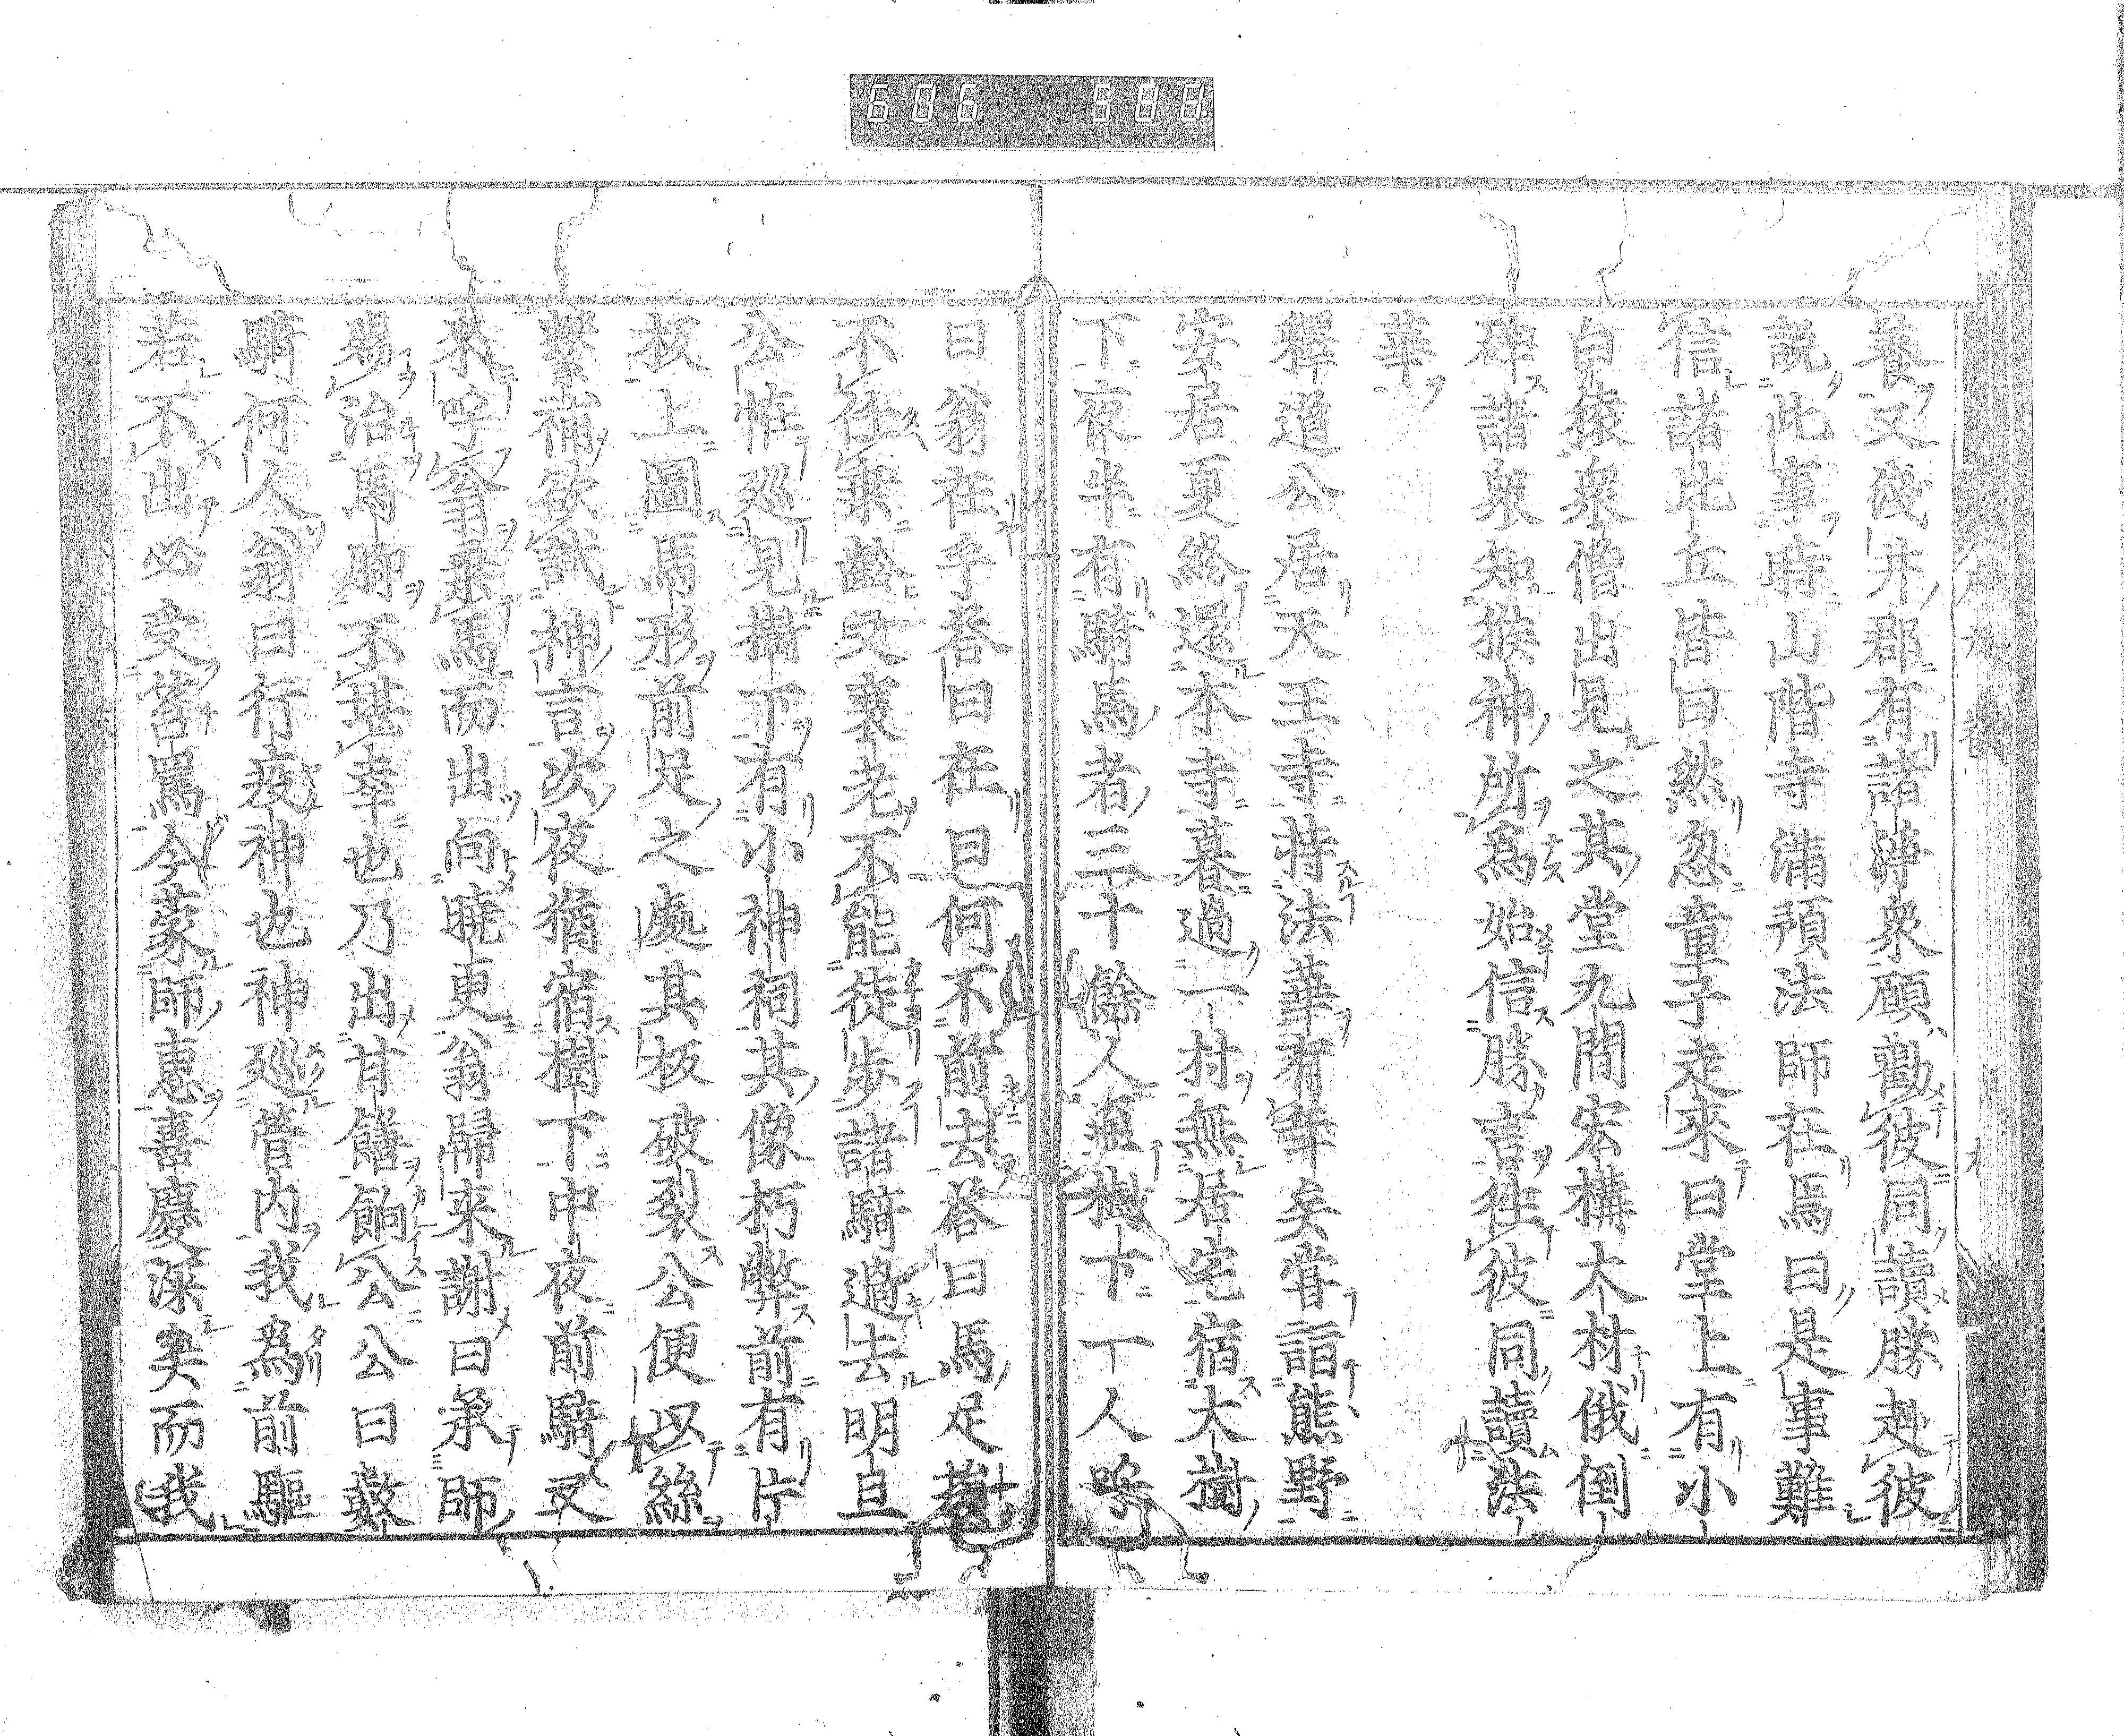 606 588
養又淺井郡有諸淨衆願勸彼同讀勝赴彼
說此事時山階寺滿預法師在焉曰是事難
信諸比丘皆曰然忽童子走來曰堂上有小
白猿衆僧出見之其堂九間宏構大材俄倒
碎諸衆知猴神所爲始信勝言徃彼同讀法
華
釋道公居天王寺持法華有年矣甞詣熊野
安居夏終還本寺暮過一村無居宅宿大樹
下夜半有騎馬者三十餘人至樹下一人呼
曰翁在乎答曰在曰何不前去答曰馬足
不任乘齡又衰老不能徒步諸騎過去明旦
公恠巡見樹下有小神祠其像朽弊前有片
板上圖馬形前足之處其板破裂公便以絲
繫補欲試神言次夜猶宿樹下中夜前騎又
來呼翁翁乘馬而出向曉更翁歸來謝曰承師
爲治馬脚不堪幸也乃出甘饍餉公公曰
騎何人翁曰行疫神也神巡管內我爲前驅
若不出必受笞罵今蒙師惠喜慶深矣而我